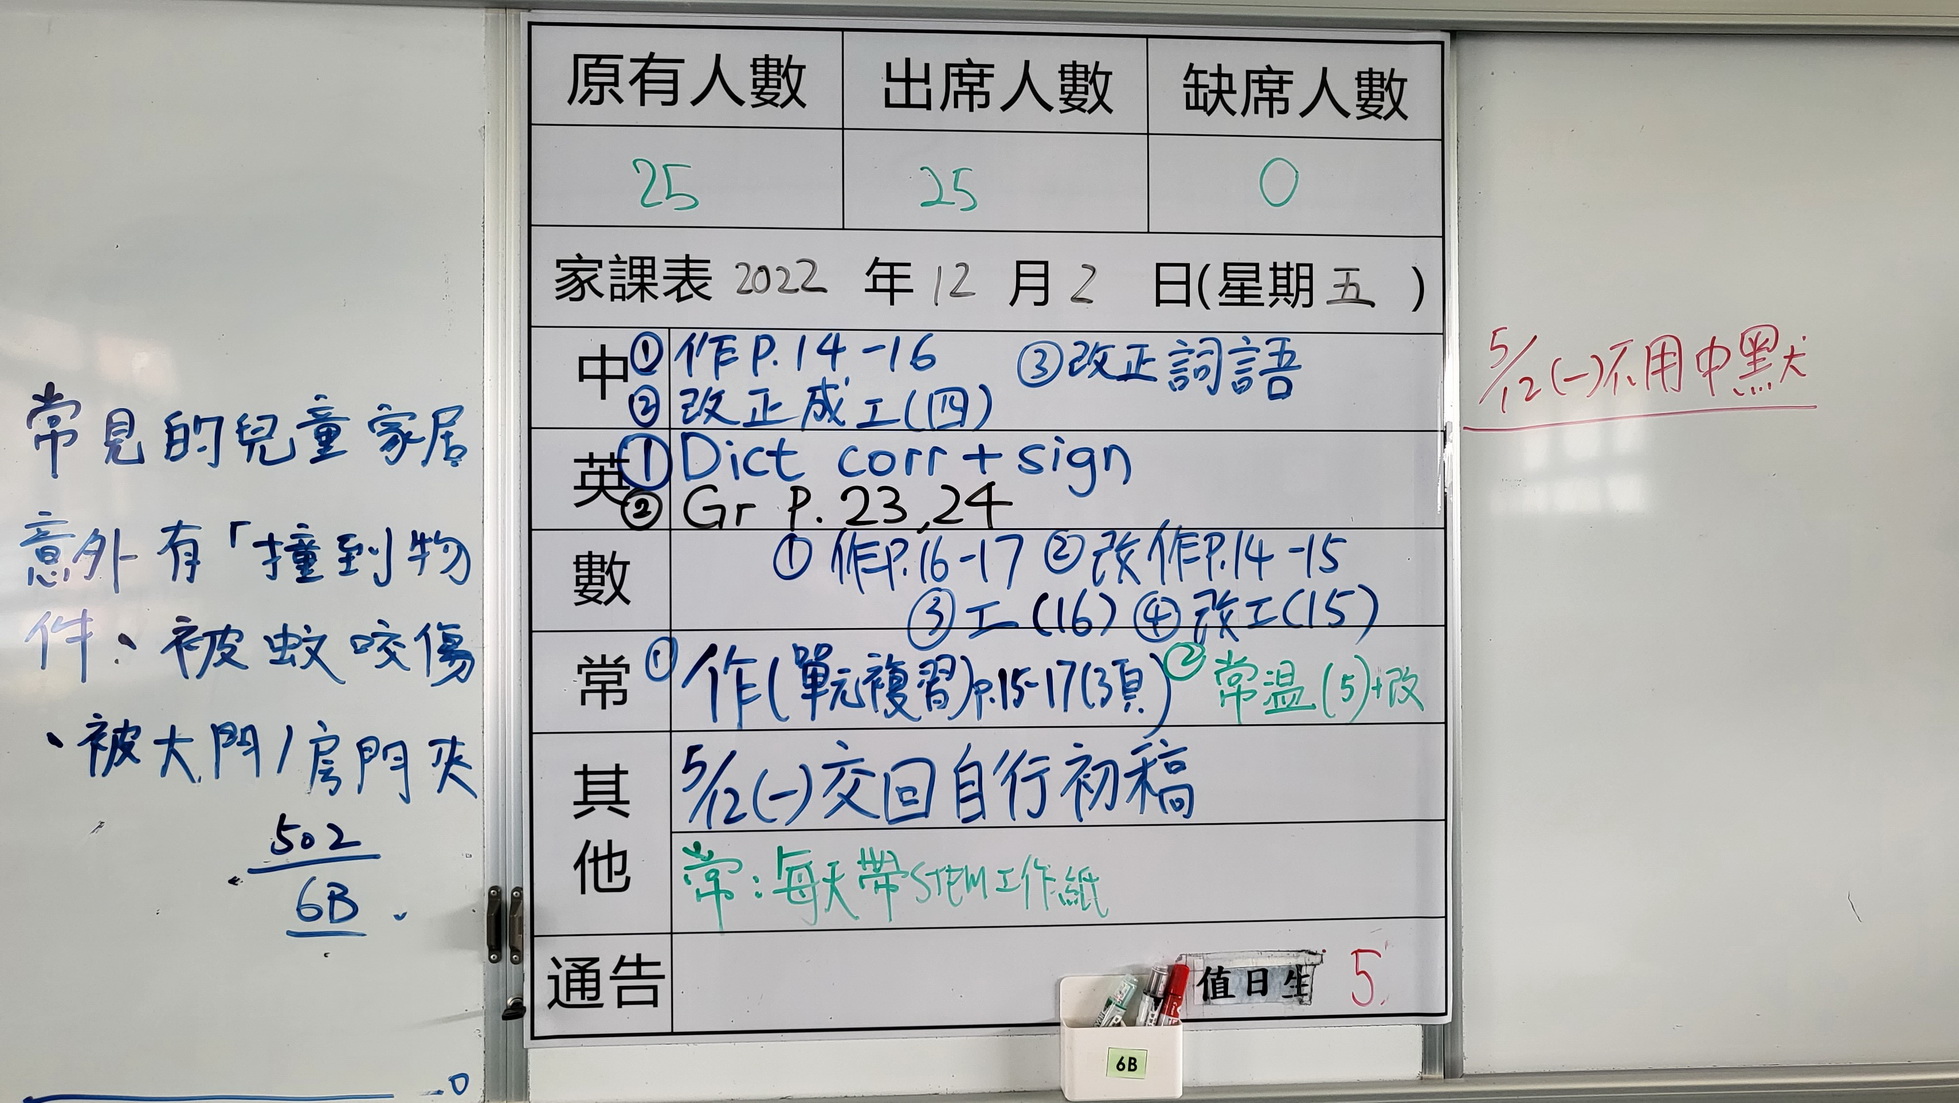 常見的兒童家居
意外有「撞到物
件、被蚊咬傷
、被大門/房門夾
502
6B
原有人數 出席人數 缺席人數
25 25 0
家課表 2022 年 12 月 2 日(星期五)
中 ①作P.14-16 ③改正詞語
②改正成工(四)
英 ①Dict corr + sign
②Gr P. 23,24
數 ①作P.16-17 ②改作P.14-15
③工(16) ④改工(15)
常 ①作(單元複習)p.15-17(3頁) ②常溫(5)+改
其他 5/12(一)交回自行初稿
常：每天帶STEM工作紙
通告 值日生 5
6B
5/12(一)不用中默